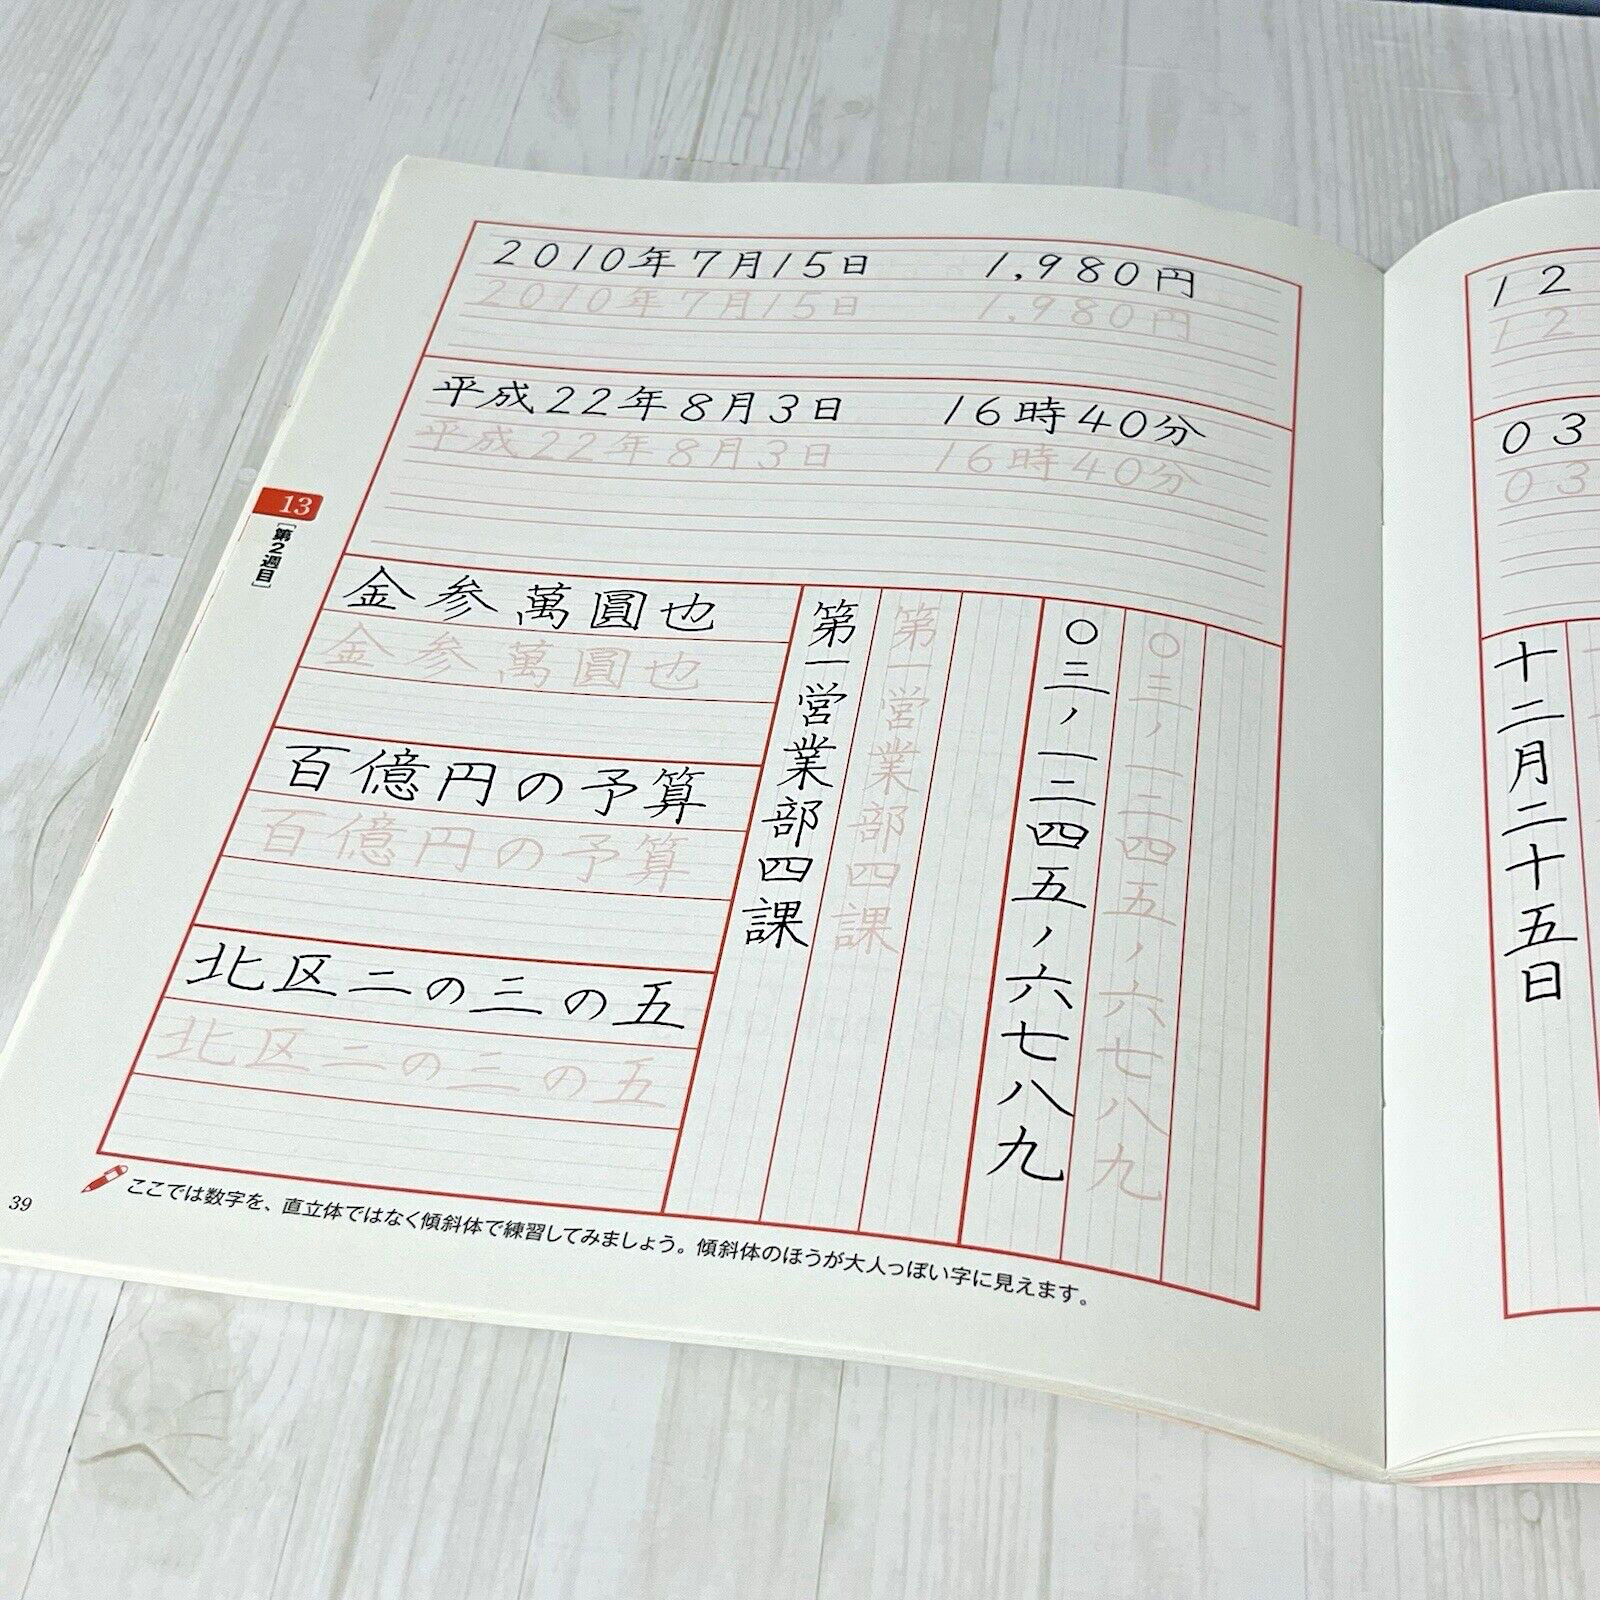 2010年7月15日 1,980円
2010年7月15日 1,980円
平成22年8月3日 16時40分
平成22年8月3日 16時40分
13
[第2週目]
金参萬圓也
金参萬圓也
百億円の予算
百億円の予算
北区二の三の五
北区二の三の五
第一営業部四課
第一営業部四課
〇三ノ一二四五ノ六七八九
〇三ノ一二四五ノ六七八九
ここでは数字を、直立体ではなく傾斜体で練習してみましょう。傾斜体のほうが大人っぽい字に見えます。
39
12
12
03
03
十二月二十五日